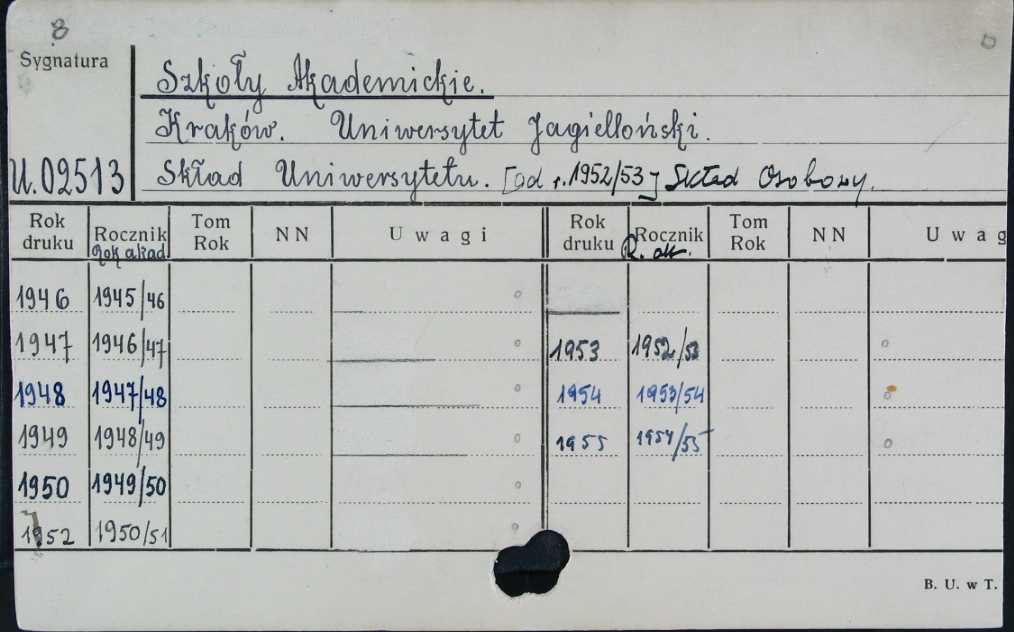 8
Sygnatura
Szkoły Akademickie.
Kraków. Uniwersytet Jagielloński.
U.02513
Skład Uniwersytetu. [od r. 1952/53] Skład Osobowy.
Rok druku Rocznik Tom Rok NN Uwagi Rok druku Rocznik Tom Rok NN Uwag
Rok akad. R. ak.
1946 1945/46
1947 1946/47 1953 1952/53
1948 1947/48 1954 1953/54
1949 1948/49 1955 1954/55
1950 1949/50
1952 1950/51
B. U. w T.